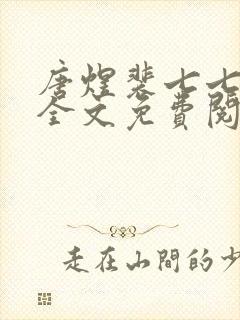 唐煌裴七七
全文免費閱
走在山間的少